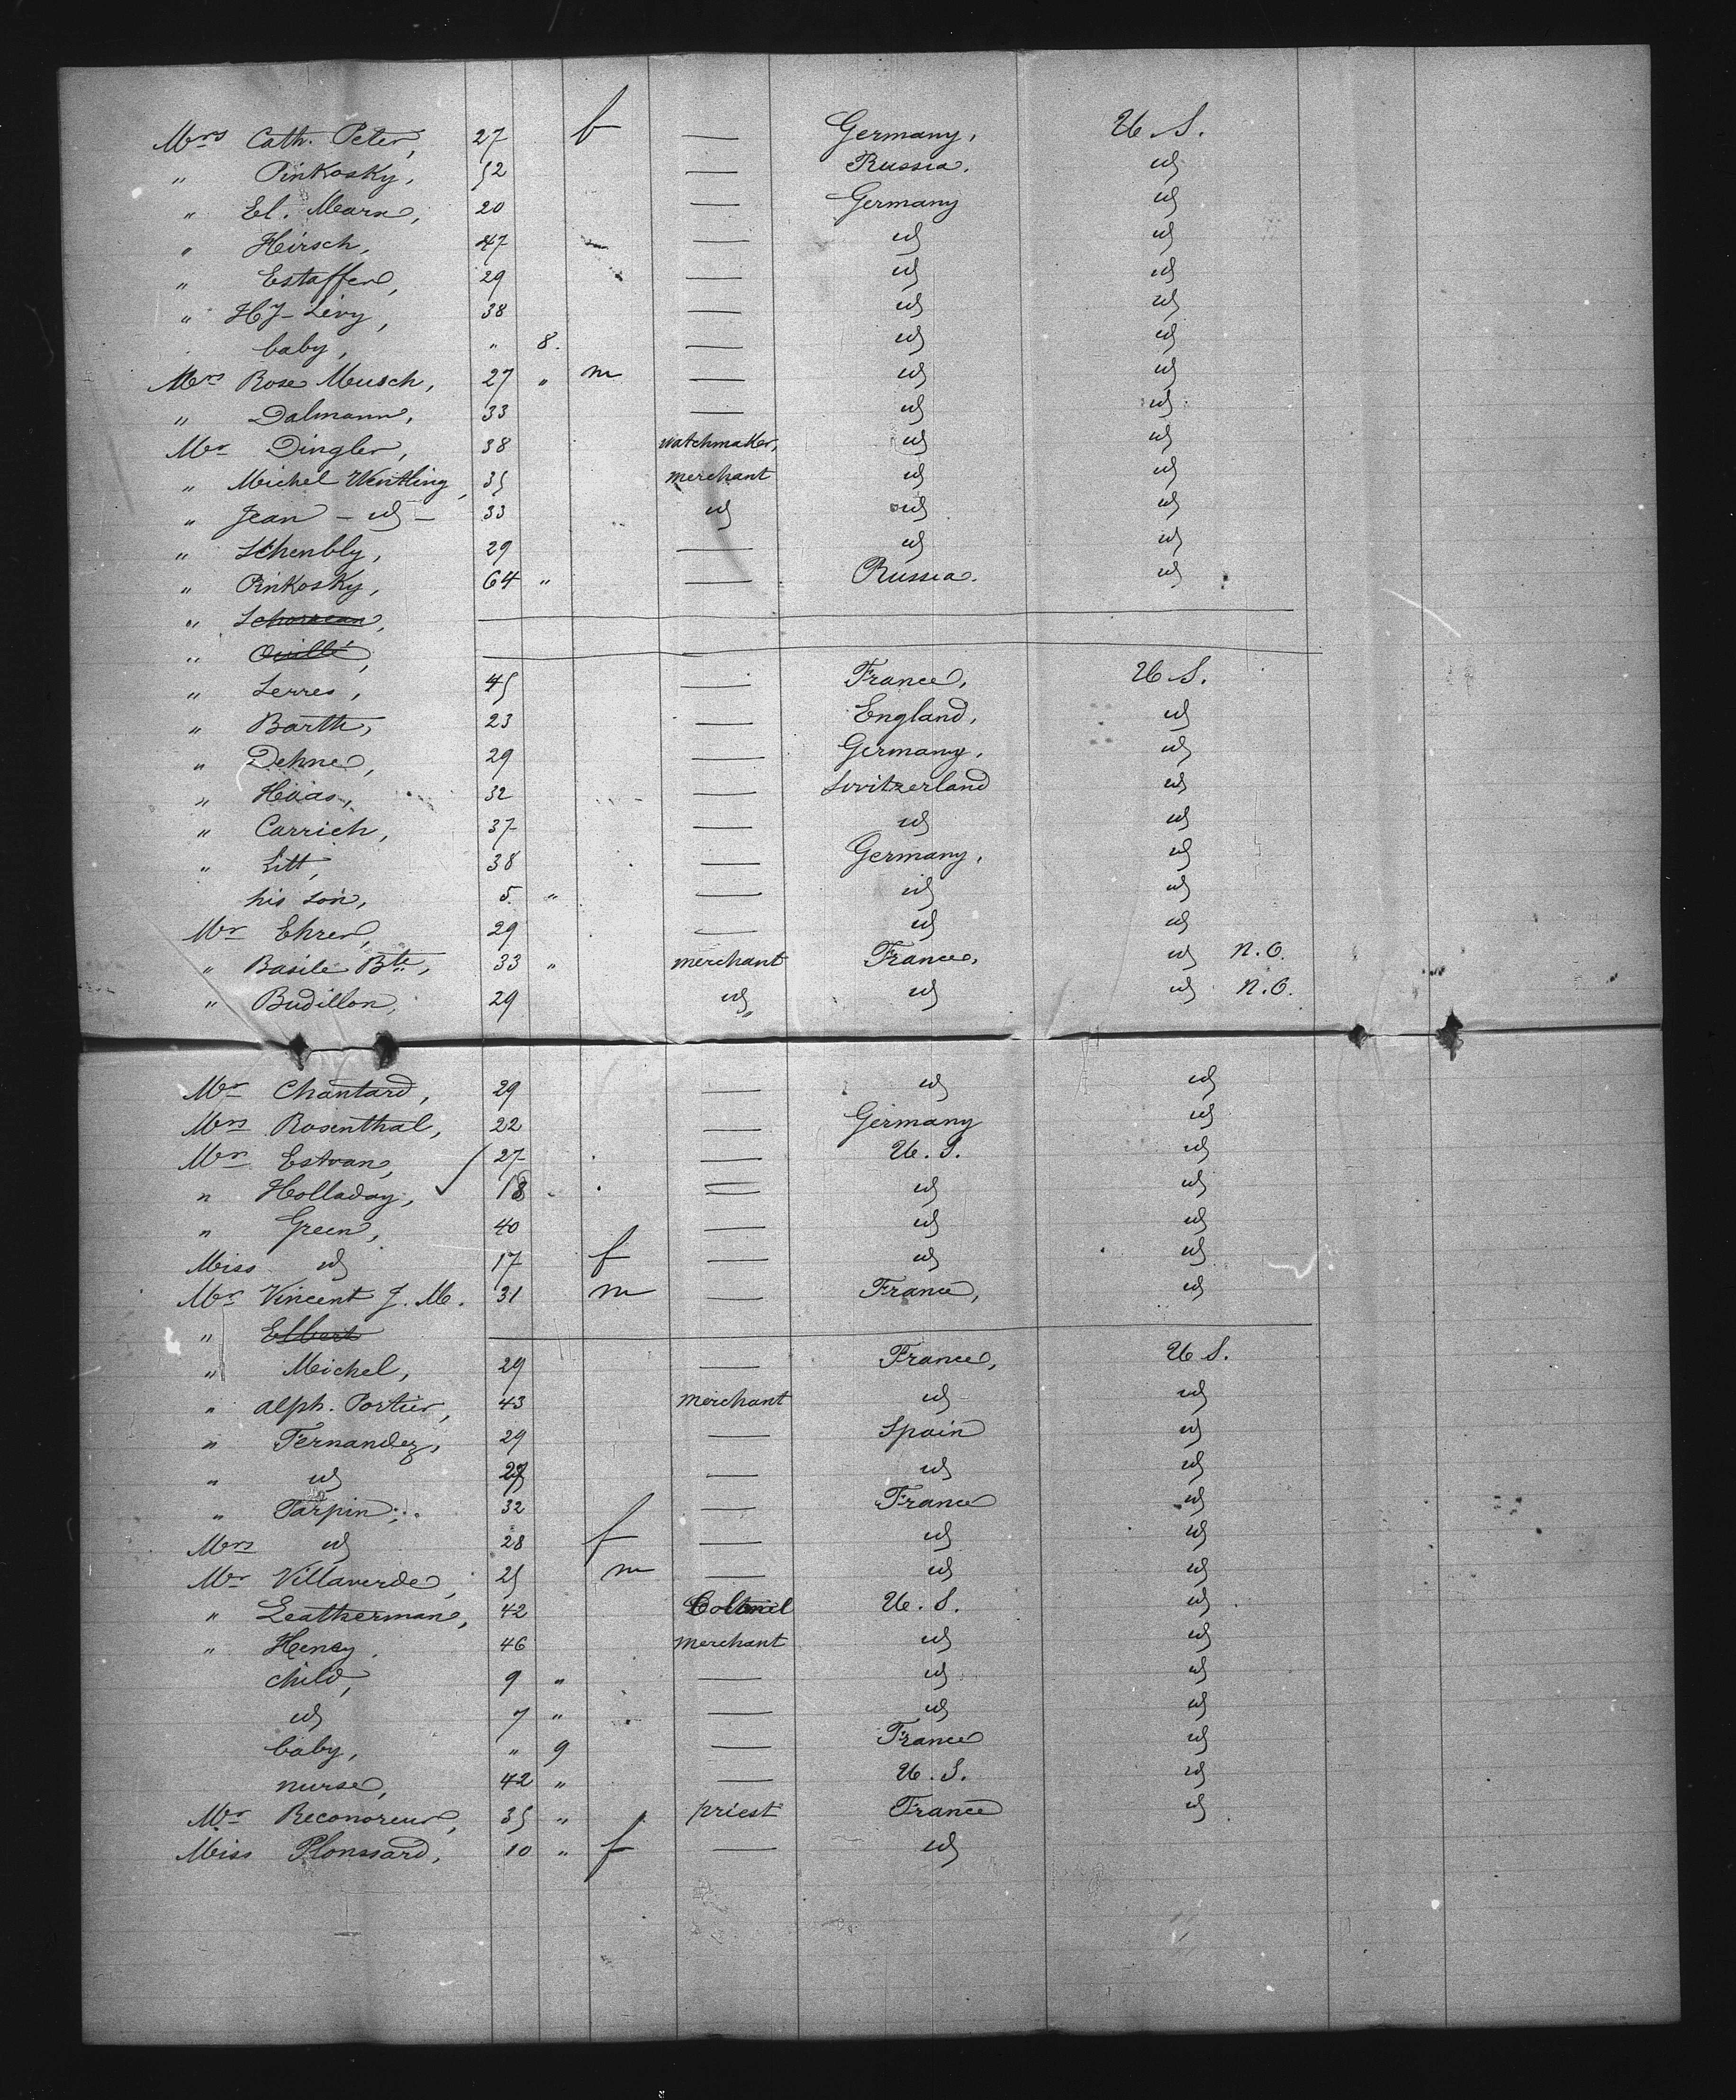 Mrs Cath. Peter, 27 f — Germany, U.S.
" Pinkosky, 52 — Russia. id
" El. Marx, 20 — Germany id
" Hirsch, 47 — id id
" Estaffen, 29 — id id
" HJ- Levy, 38 — id id
baby, " 8. — id id
Mrs Rose Musch, 27 " m — id id
" Dalmann, 33 — id id
Mr Dingler, 38 watchmaker, id id
" Michel Wentling, 35 merchant id id
" Jean - id - 33 id id id
" Schenbly, 29 — id id
" Pinkosky, 64 " — Russia. id
"
" Ouillé, —
" Serres, 45 — France, U.S.
" Barth, 23 — England, id
" Dehne, 29 — Germany, id
" Haas, 32 — Switzerland id
" Carrich, 37 — id id
" Litt, 38 — Germany, id
his son, 5. " — id id
Mr Ehren, 29 — id id
" Basile Bte, 33 " merchant France, id N.O.
" Budillon, 29 id id id N.O.
Mr Chantard, 29 — id id
Mrs Rosenthal, 22 — Germany id
Mr Estvan, 27 — U.S. id
" Holladay, 18 — id id
" Green, 40 — id id
Miss id 17 f — id id
Mr Vincent J. M. 31 m — France, id
" Elbert
" Michel, 29 — France, U.S.
" Alph. Portier, 43 merchant id id
" Fernandez, 29 — Spain id
" id 27 — id id
" Tarpin, 32 — France id
Mrs id 28 f — id id
Mr Villaverde, 25 m — id id
" Leatherman, 42 Colonel U.S. id
" Heney. 46 merchant id id
child, 9 " — id id
id 7 " — id id
baby, " 9 — France id
nurse, 42 " — U.S. id
Mr 35 " priest France id
Miss Plonssard, 10 " f — id